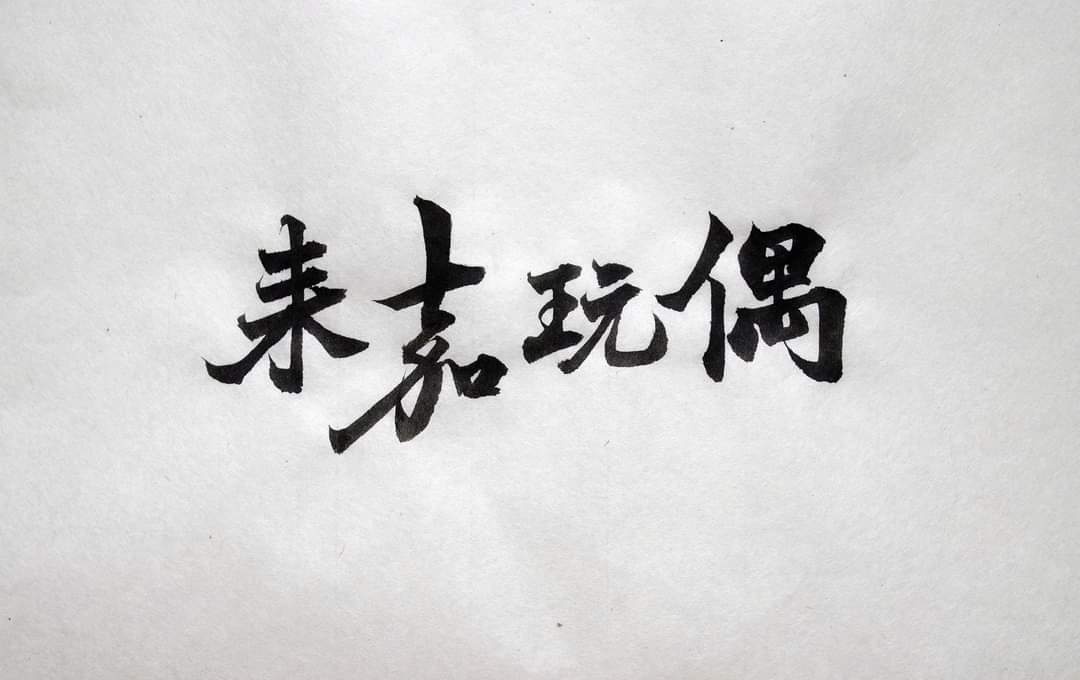 来嘉玩偶